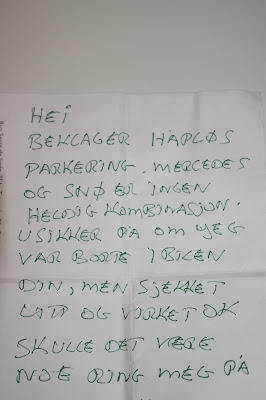 HEI
BEKLAGER HÅPLØS
PARKERING. MERCEDES
OG SNØ ER INGEN
HELDIG KOMBINASJON.
USIKKER PÅ OM JEG
VAR BORTE I BILEN
DIN, MEN SJEKKET
LITT OG VIRKET OK
SKULLE DET VERE
NOE RING MEG PÅ